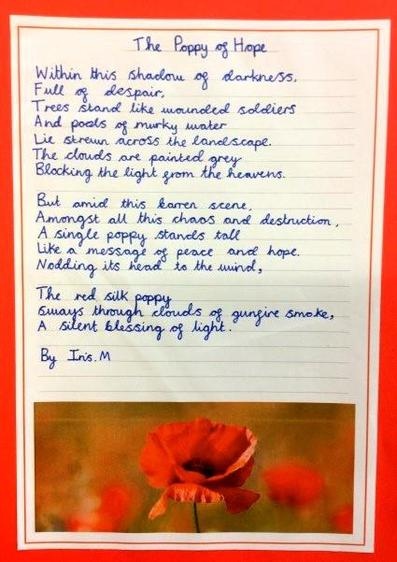 The Poppy of Hope
Within this shadow of darkness,
Full of despair,
Trees stand like wounded soldiers
And pools of murky water
Lie strewn across the landscape.
The clouds are painted grey
Blocking the light from the heavens.
But amid this barren scene,
Amongst all this chaos and destruction,
A single poppy stands tall
Like a message of peace and hope.
Nodding its head to the wind,
The red silk poppy
Sways through clouds of gunfire smoke,
A silent blessing of light.
By Iris.M